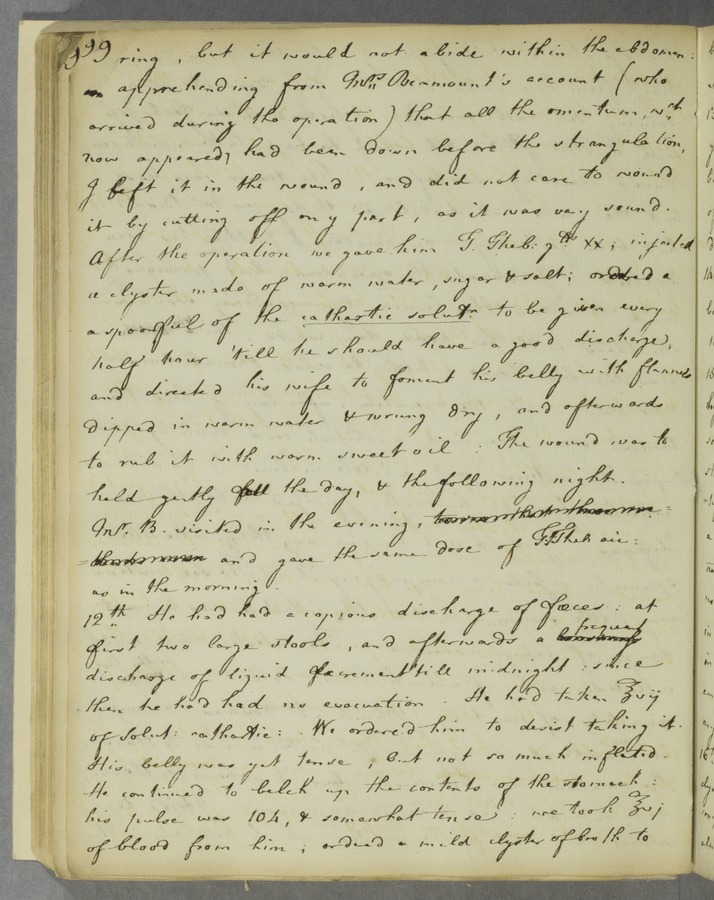 199 ring, but it would not abide within the abdomen:
apprehending from Mrs. Benmount's account (who
arrived during the operation) that all the omentum, wch
now appeared, had been down before the strangulation,
I left it in the wound, and did not care to wound
it by cutting off any part, as it was very sound.
After the operation we gave him T. Theb: gtt xx; injected
a clyster made of warm water, sugar & salt; ordered a
a spoonful of the cathartic solutn to be given every
half hour 'till he should have a good discharge,
and directed his wife to foment his belly with flannels
dipped in warm water & wrung dry, and afterwards
to rub it with warm sweet oil: The wound was to
held gently all the day, & the following night.
Mr. B. visited in the evening,
and gave the same dose of T. Thebaic:
as in the morning.
12th He had had a copious discharge of fæces: at
first two large stools, and afterwards a frequent
discharge of liquid excrement 'till midnight: since
then he had had no evacuation. He had taken ℥vij
of solut: cathartic: We ordered him to desist taking it.
His belly was yet tense, but not so much inflated.
He continued to belch up the contents of the stomach:
his pulse was 104, & somewhat tense: we took ℥vj
of blood from him; ordered a mild clyster of broth to